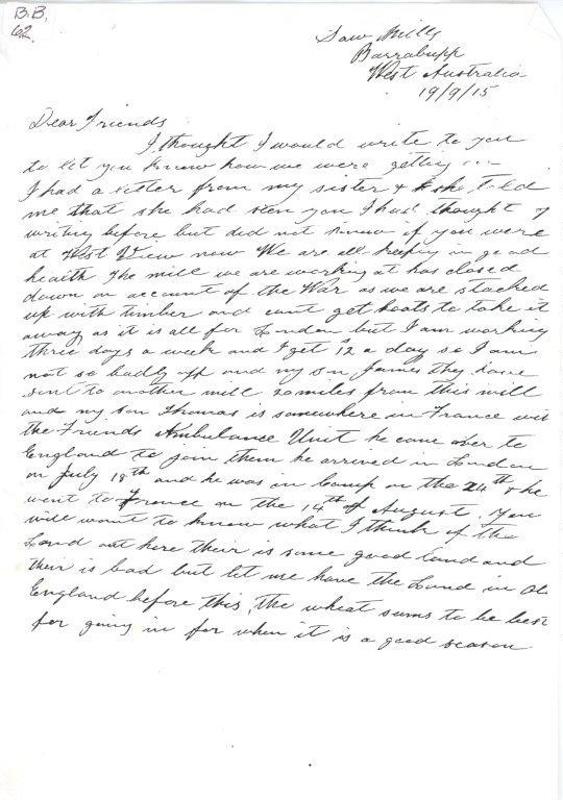 B.B.
62.
Saw Mills
Barrabupp
West Australia
19/9/15
Dear Friends
I thought I would write to you
to let you know how we were getting on
I had a letter from my sister & she told
me that she had seen you I had thought of
writing before but did not know if you were
at West View now We are all keeping in good
health The mill we are working at has closed
down on account of the War as we are stacked
up with timber and cant get boats to take it
away as it is all for London but I am working
three days a week and I get 12 a day so I am
not so badly off and my son James they have
sent to another mill 20 miles from this mill
and my son Thomas is somewhere in France wit
the Friends Ambulance Unit he came over to
England to join them he arrived in London
on July 18th and he was in Camp on the 24th & he
went to France on the 14th of August. You
will want to know what I think of the
Land out here their is some good land and
their is bad but let me have the Land in
England before this, the wheat seems to be best
for going in for when it is a good season